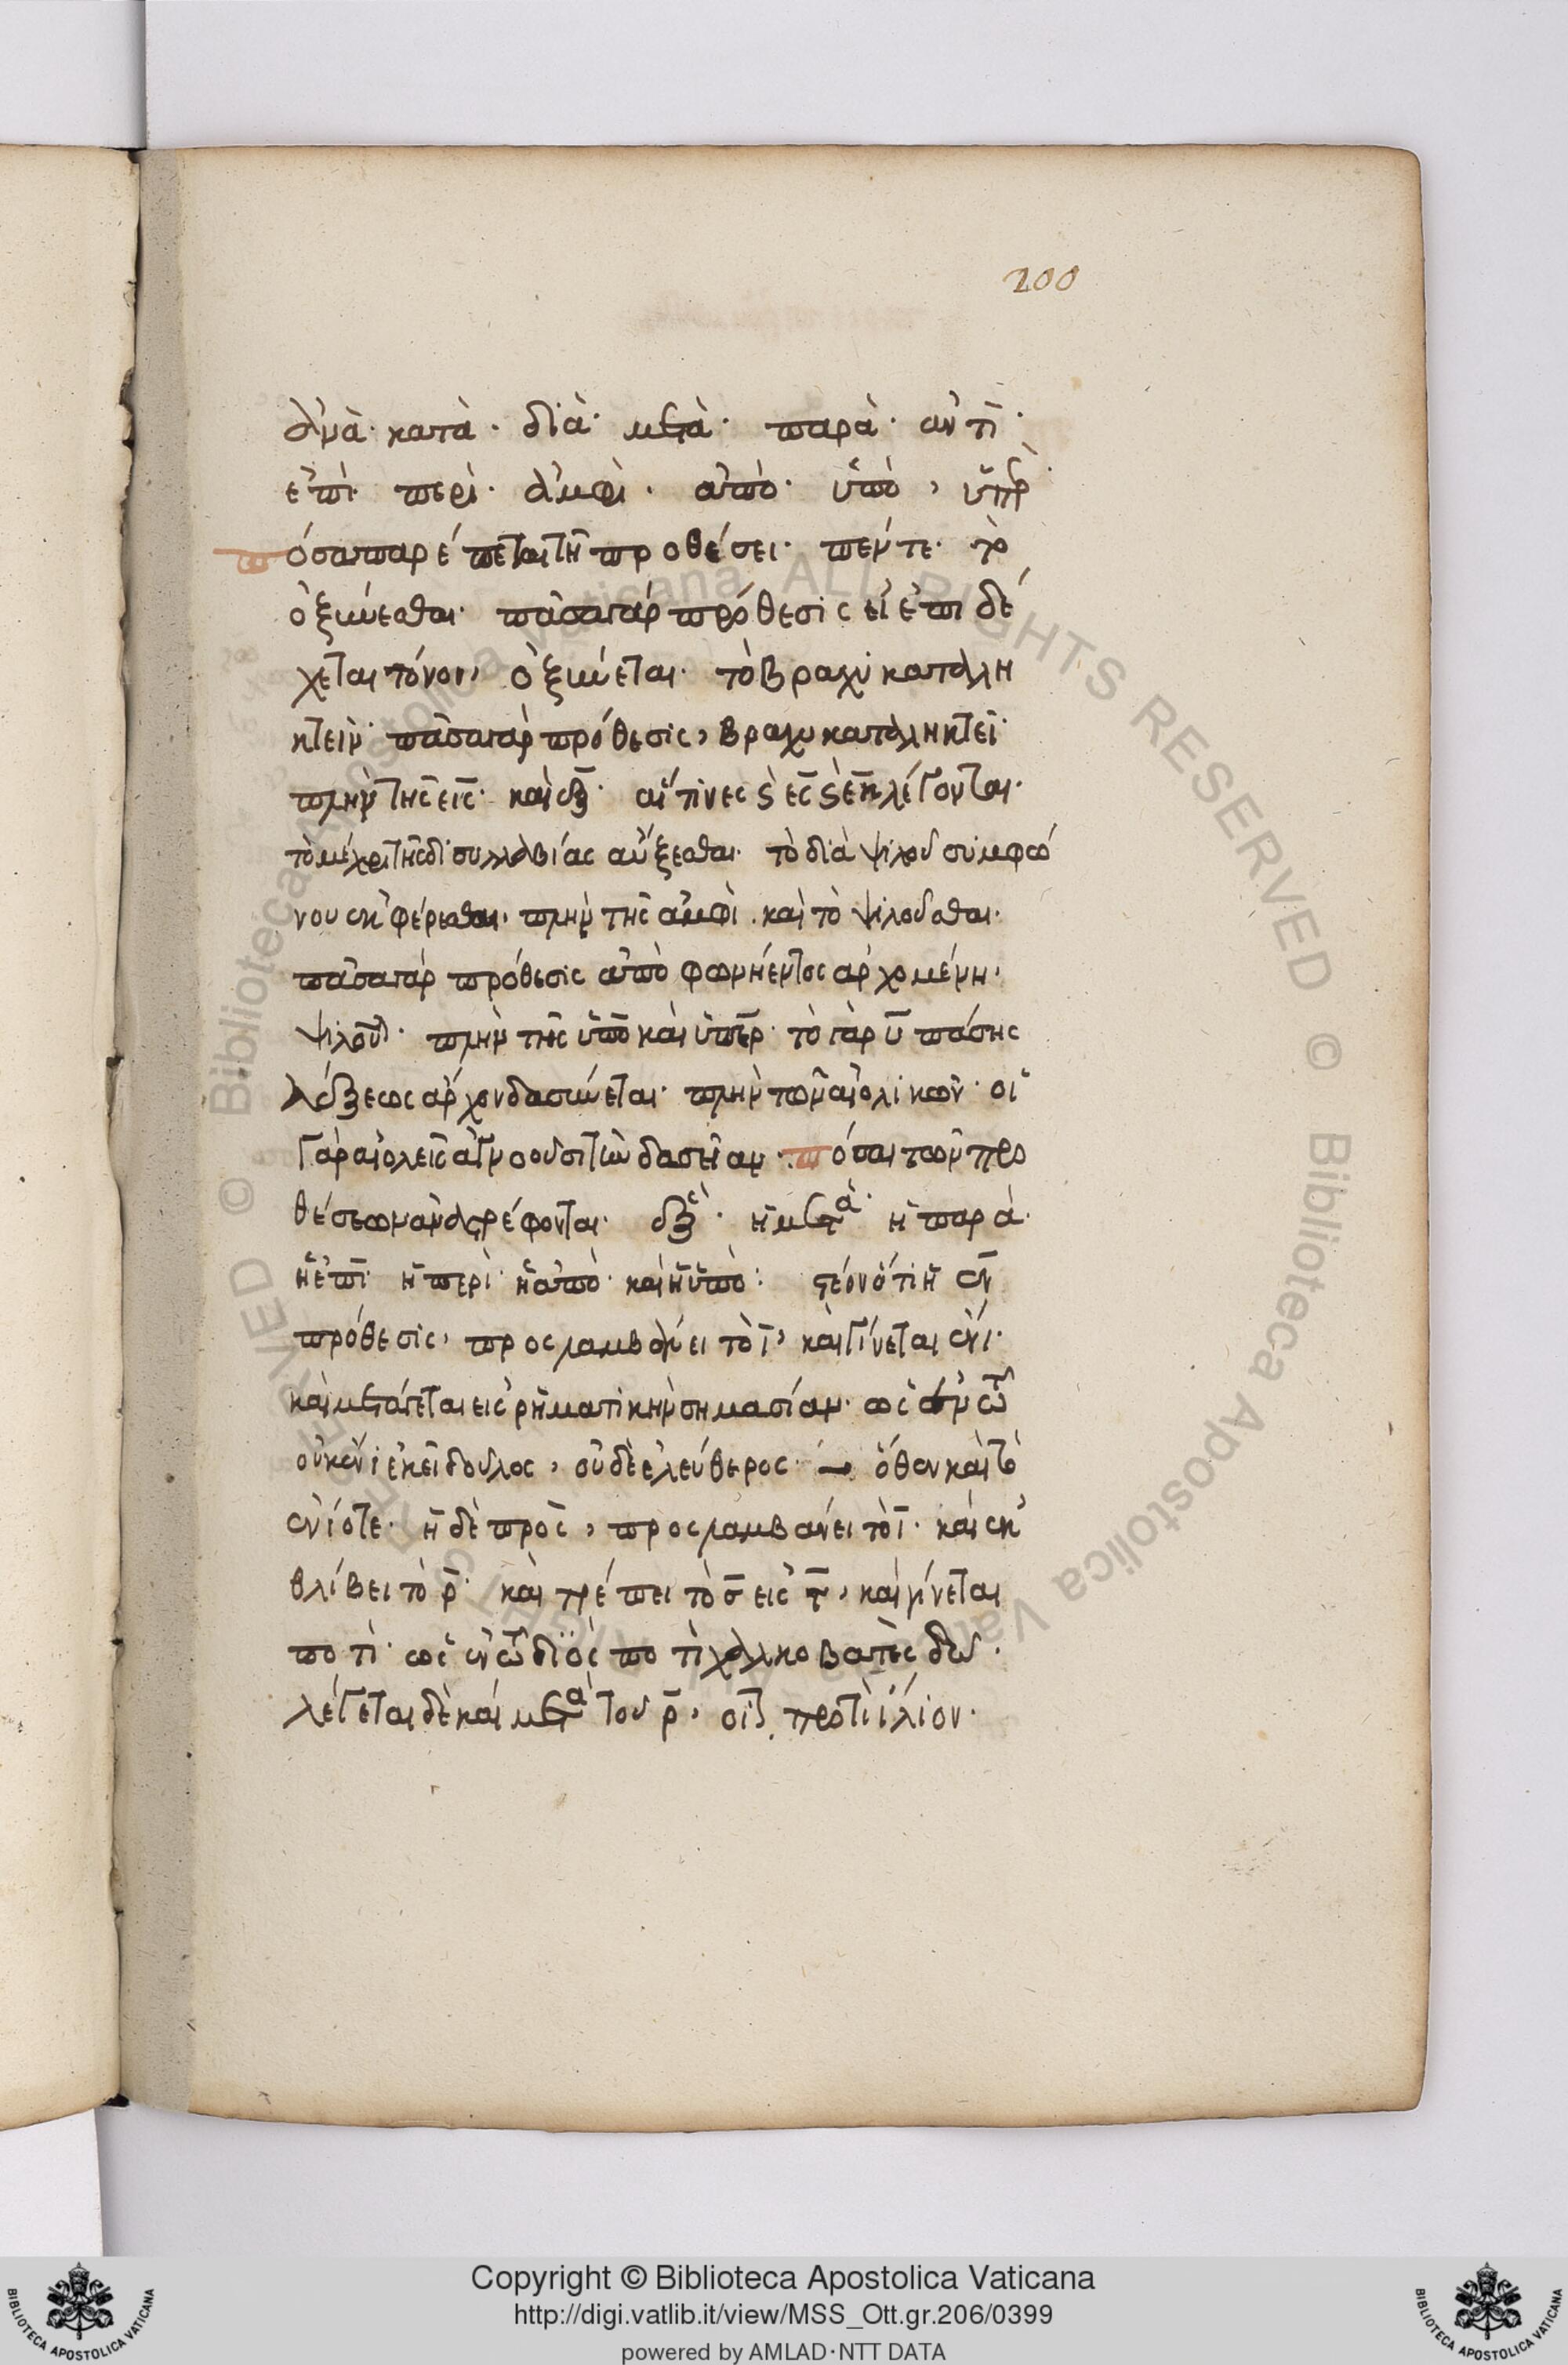 200
ἀνὰ· κατὰ· διὰ· μετὰ· παρὰ· ἀντὶ·
ἐπὶ· περὶ· ἀμφὶ· ἀπὸ· ὑπὸ, ὑπὲρ·
πόσα παρέπεται τῆ προθέσει· πέντε· τὸ
ὀξύνεσθαι· πᾶσα γὰρ πρόθεσις εἰ ἐπιδέ
χεται τόνον, ὀξύνεται· τὸ βραχυκαταλη
κτεῖν· πᾶσα γὰρ πρόθεσις, βραχυκαταληκτεῖ·
πλὴν τῆς εἰς· καὶ ἐξ· αἵτινες καὶ ἐς καὶ ἐκ λέγονται·
τὸ μέχρι τῆς δισυλλαβίας αὔξεσθαι· τὸ διὰ ψιλοῦ συμφώ
νου ἐκφέρεσθαι· πλὴν τῆς ἀμφὶ· καὶ τὸ ψιλοῦσθαι·
πᾶσα γὰρ πρόθεσις ἀπὸ φωνήεντος ἀρχομένη,
ψιλοῦται· πλὴν τῆς ὑπὸ καὶ ὑπὲρ· τὸ γὰρ υ πάσης
λέξεως ἄρχον δασύνεται· πλὴν τῶν αἰολικῶν· οἱ
γὰρ αἰολεῖς ἀγνοοῦσι τὴν δασεῖαν· πόσαι τῶν προ
θέσεων ἀναστρέφονται· ἓξ· ἡ μετὰ· ἡ παρὰ·
ἡ ἐπὶ· ἡ περὶ· ἡ ἀπὸ· καὶ ἡ ὑπὸ: ἰστέον ὅτι ἡ ἐν
πρόθεσις, προσλαμβάνει τὸ ι, καὶ γίνεται ἐνί·
καὶ μετάγεται εἰς ῥηματικὴν σημασίαν· ὡς ἐν τῷ
οὐκ ἐνὶ ἐκεῖ δοῦλος, οὐδὲ ἐλεύθερος· ὅθεν καὶ τὸ
ἐνίοτε· ἡ δὲ πρὸς, προσλαμβάνει τὸ ι· καὶ ἐκ
θλίβει τὸ ρ· καὶ τρέπει τὸ σ εἰς τ, καὶ γίνεται
ποτὶ· ὡς ἐν τῷ διὸς ποτὶ χαλκοβατὲς δῶ·
λέγεται δὲ καὶ μετὰ τοῦ ρ, οἷον προτὶ ἴλιον·
© Biblioteca Apostolica Vaticana ALL RIGHTS RESERVED © Biblioteca Apostolica Vaticana
Copyright © Biblioteca Apostolica Vaticana
http://digi.vatlib.it/view/MSS_Ott.gr.206/0399
powered by AMLAD·NTT DATA
BIBLIOTECA APOSTOLICA VATICANA
BIBLIOTECA APOSTOLICA VATICANA